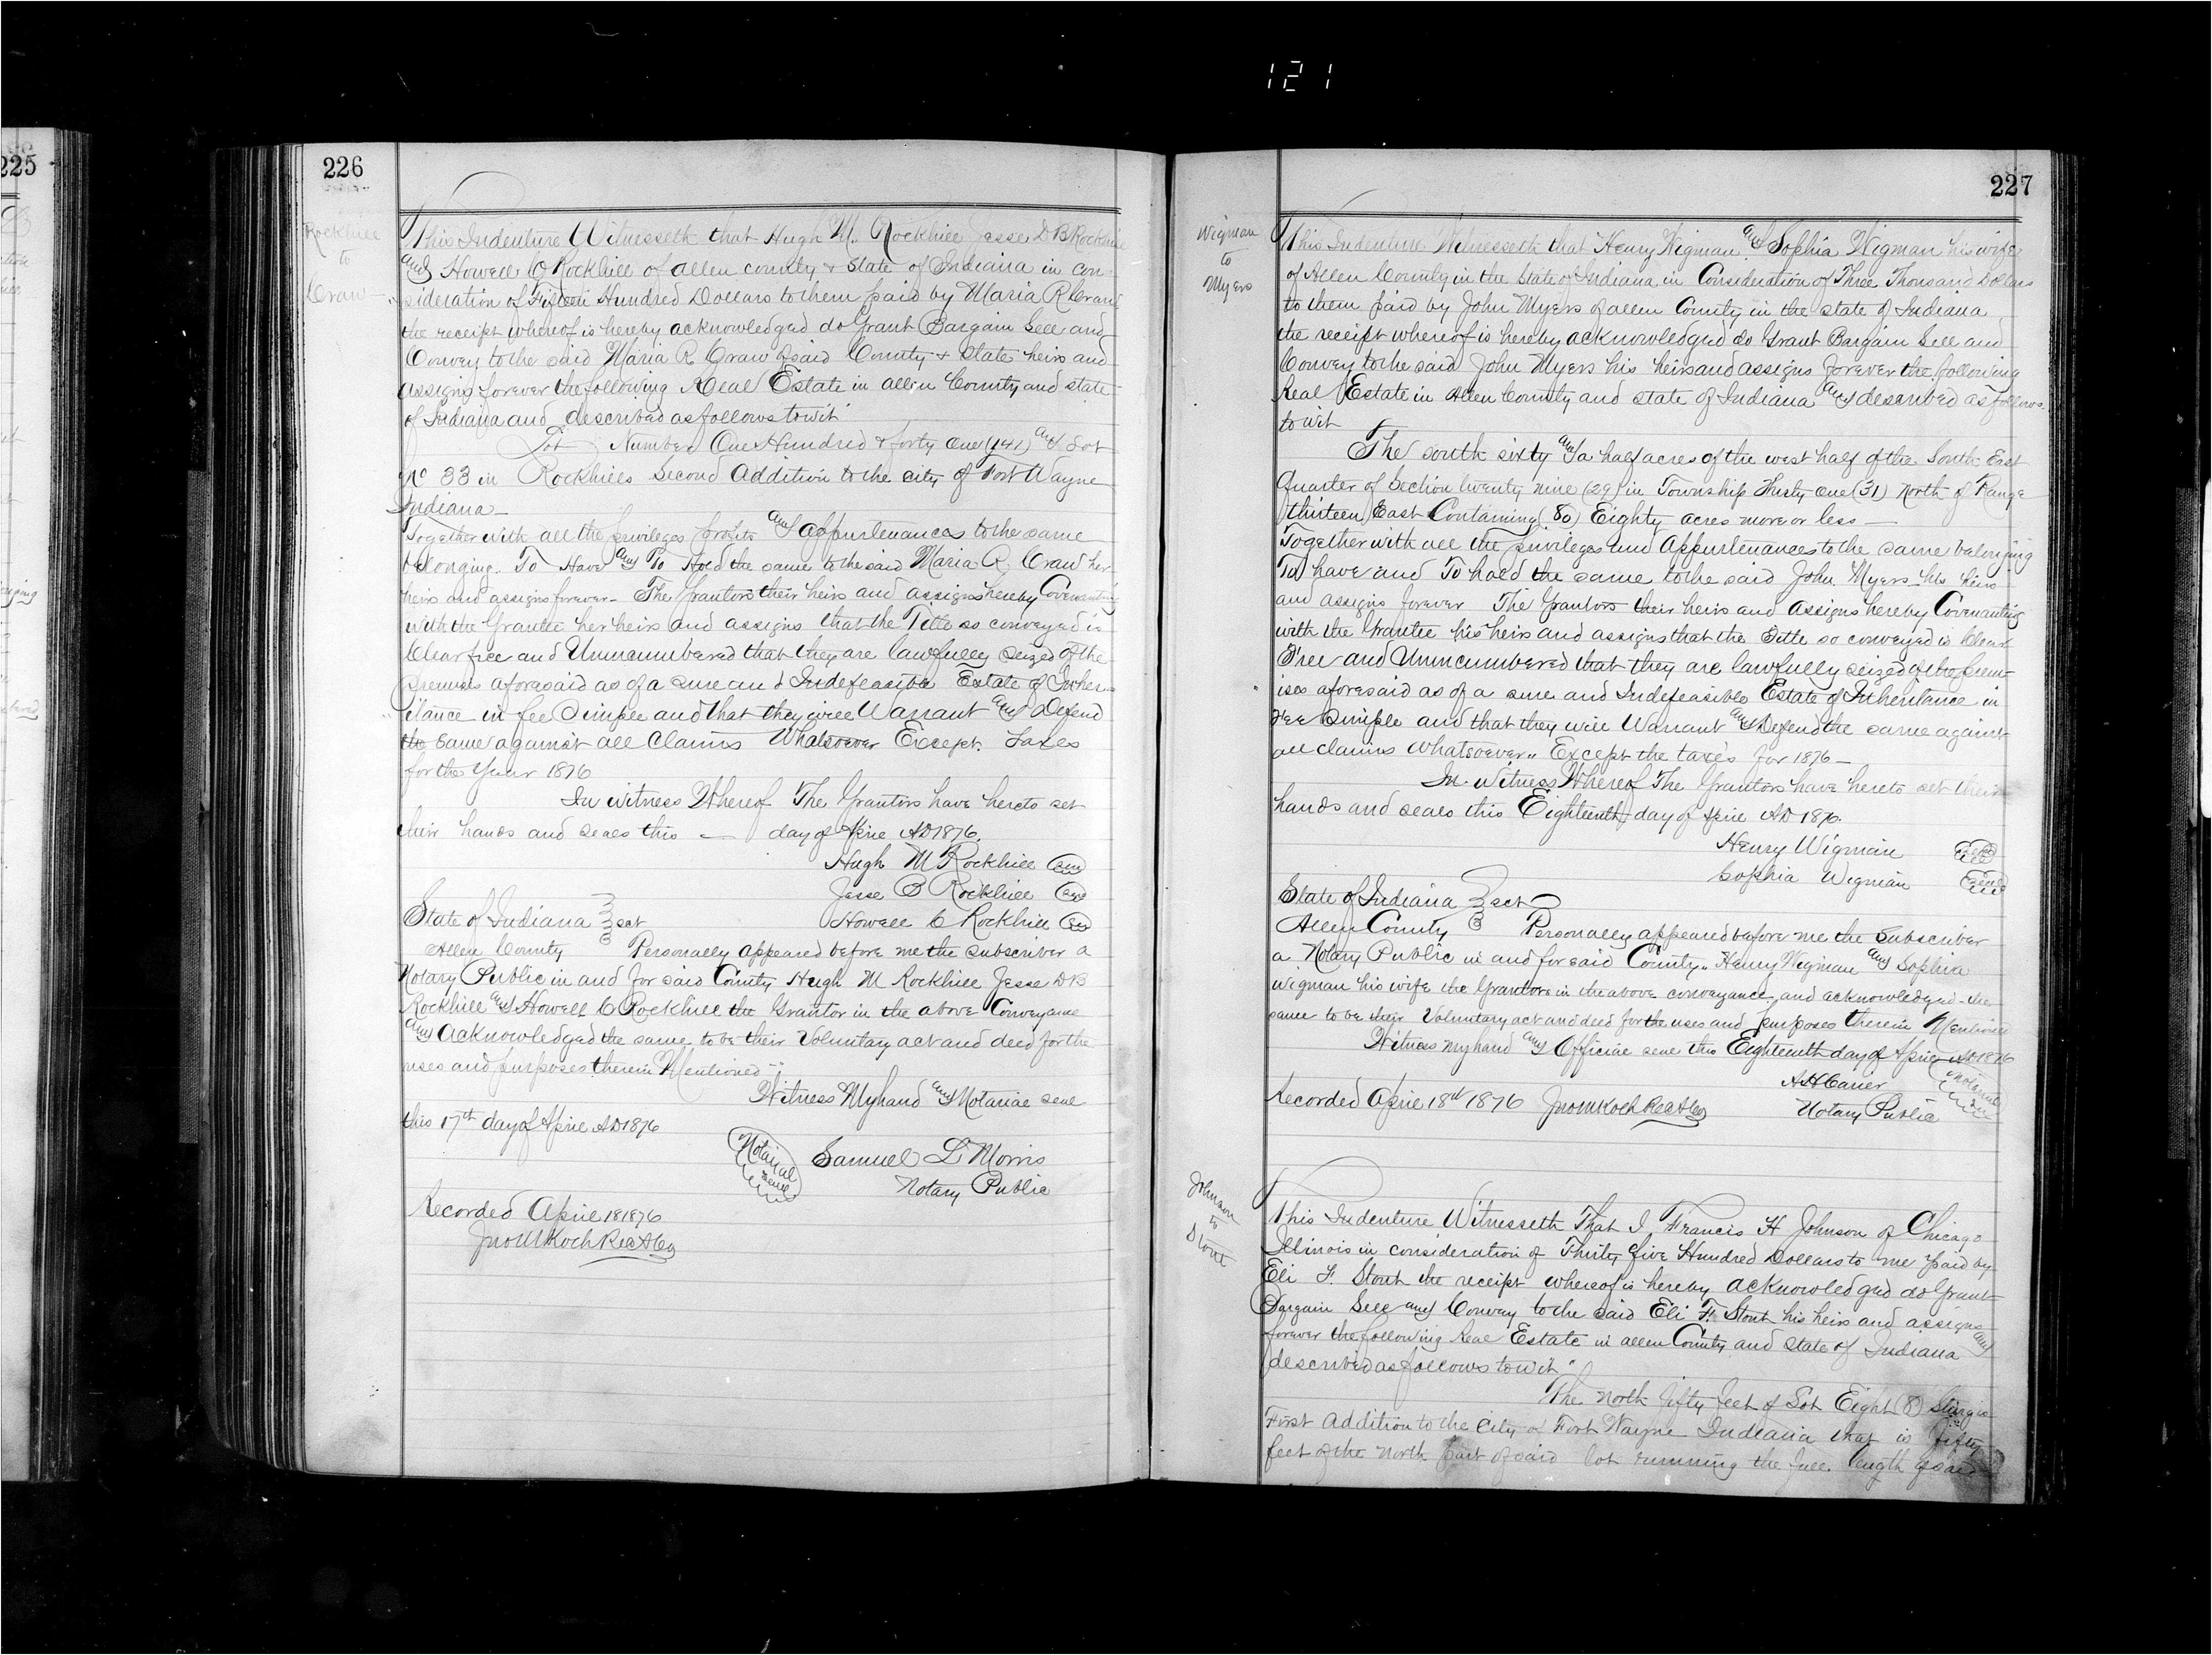 121
225
226
Rockhill
to
Craw
This Indenture Witnesseth that Hugh M. Rockhill Jesse D B Rockhill
and Howell C Rockhill of allen county & State of Indiana in con
sideration of Fifteen Hundred Dollars to them paid by Maria R Craw
the receipt whereof is hereby acknowledged do Grant Bargain Sell and
Convey to the said Maria R Craw of said County & State heirs and
assigns forever the following Real Estate in allen County and state
of Indiana and described as follows to wit
Lot Number One Hundred & forty one (141) and Lot
No 33 in Rockhills Second Addition to the city of Fort Wayne
Indiana
Together with all the privileges profits and appurtenances to the same
belonging. To Have and To Hold the same to the said Maria R. Craw her
heirs and assigns forever - The Grantors their heirs and assigns hereby Covenanting
with the Grantee her heirs and assigns that the Title so conveyed is
Clear free and Unincumbered that they are lawfully seized of the
premises aforesaid as of a sure and Indefeasible Estate of Inher
itance in fee Simple and that they will Warrant and Defend
the same against all Claims Whatsoever Except. Taxes
for the Year 1876
In witness Whereof The Grantors have hereto set
their hands and seals this — day of April AD 1876.
Hugh M Rockhill Seal
Jesse B Rockhill Seal
State of Indiana } sct Howell C Rockhill Seal
Allen County Personally appeared before me the subscriber a
Notary Public in and for said County Hugh M Rockhill Jesse D B
Rockhill and Howell C Rockhill the Grantor in the above Conveyance
and Acknowledged the same to be their Voluntary act and deed for the
uses and purposes therein Mentioned
Witness My hand and Notarial seal
this 17th day of April AD 1876
Notarial Seal Samuel L Morris
Notary Public
Recorded April 18 1876
Jno M Koch Rec A Co
227
Wigman
to
Myers
This Indenture Witnesseth that Henry Wigman and Sophia Wigman his wife
of Allen County in the State of Indiana in Consideration of Three Thousand Dollars
to them paid by John Myers of allen County in the state of Indiana
the receipt whereof is hereby acknowledged do Grant Bargain Sell and
Convey to the said John Myers his heirs and assigns forever the following
Real Estate in Allen County and state of Indiana and described as follows
to wit
The south sixty and a half acres of the west half of the South East
Quarter of Section twenty nine (29) in Township Thirty One (31) North of Range
thirteen East Containing (80) Eighty acres more or less —
Together with all the privileges and Appurtenances to the same belonging
To have and To hold the same to the said John Myers his heirs
and assigns forever The Grantors their heirs and assigns hereby Covenanting
with the Grantee his heirs and assigns that the Title so conveyed is Clear
Free and Unincumbered that they are lawfully seized of the prem
ises aforesaid as of a sure and Indefeasible Estate of Inheritance in
Fee Simple and that they will Warrant and Defend the same against
all claims whatsoever " Except the taxes for 1876 —
In Witness Whereof The Grantors have hereto set their
hands and seals this Eighteenth day of April AD 1876.
Henry Wigman Seal
Sophia Wigman Seal
State of Indiana } sct
Allen County } Personally appeared before me the Subscriber
a Notary Public in and for said County " Henry Wigman and Sophia
Wigman his wife the Grantors in the above conveyance, and acknowledged the
same to be their Voluntary act and deed for the uses and purposes therein Mentioned
Witness my hand and Official seal this Eighteenth day of April AD 1876
A H Carier Notarial Seal
Recorded April 18th 1876 Jno M Koch Rec A Co Notary Public
Johnson
to
Stout
This Indenture Witnesseth That I Francis H Johnson of Chicago
Illinois in consideration of Thirty five Hundred Dollars to me paid by
Eli F. Stout the receipt whereof is hereby acknowledged do Grant
Bargain Sell and Convey to the said Eli F. Stout his heirs and assigns
forever the following Real Estate in allen County and State of Indiana and
described as follows to wit "
The North fifty feet of Lot Eight (8) Sturgis
First Addition to the City of Fort Wayne Indiana that is fifty
feet of the North part of said lot running the full length of said